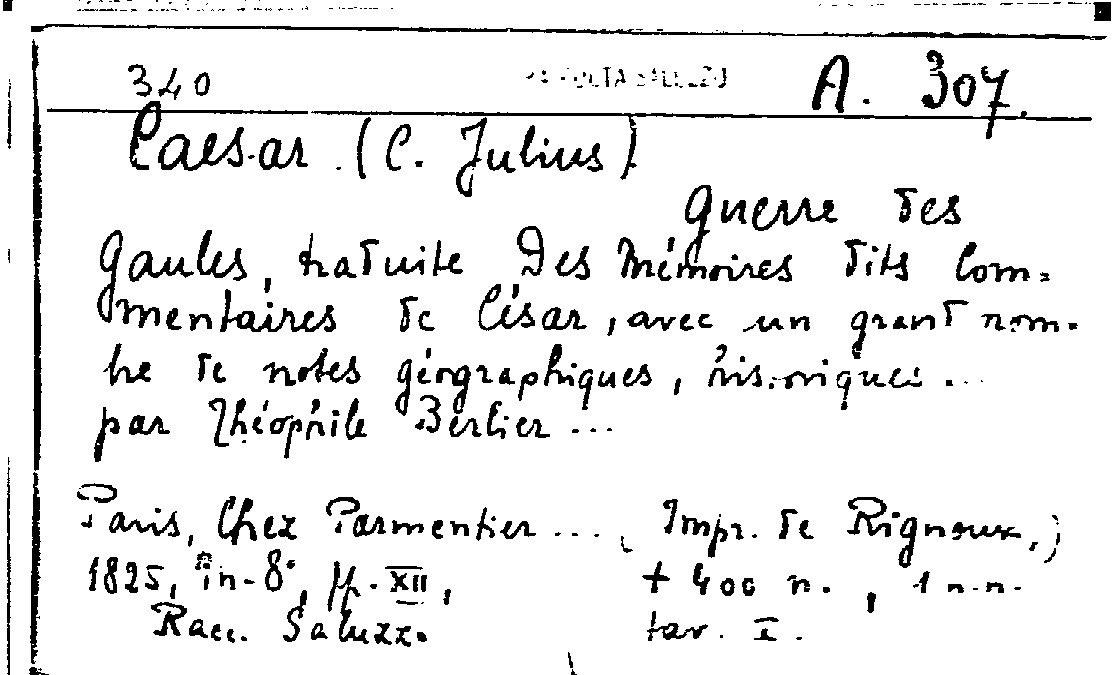 340 A. 307.
Caesar (C. Julius)
Guerre des
Gaules, traduite Des Mémoires dits Com=
mentaires de César, avec un grand nom-
bre de notes géographiques, historiques...
par Théophile Berlier...
Paris, Chez Parmentier... (Impr. de Rignoux,)
1825, in-8°, pp. XII, + 400 n., 1 n.n.
Racc. Saluzz. tav. I.